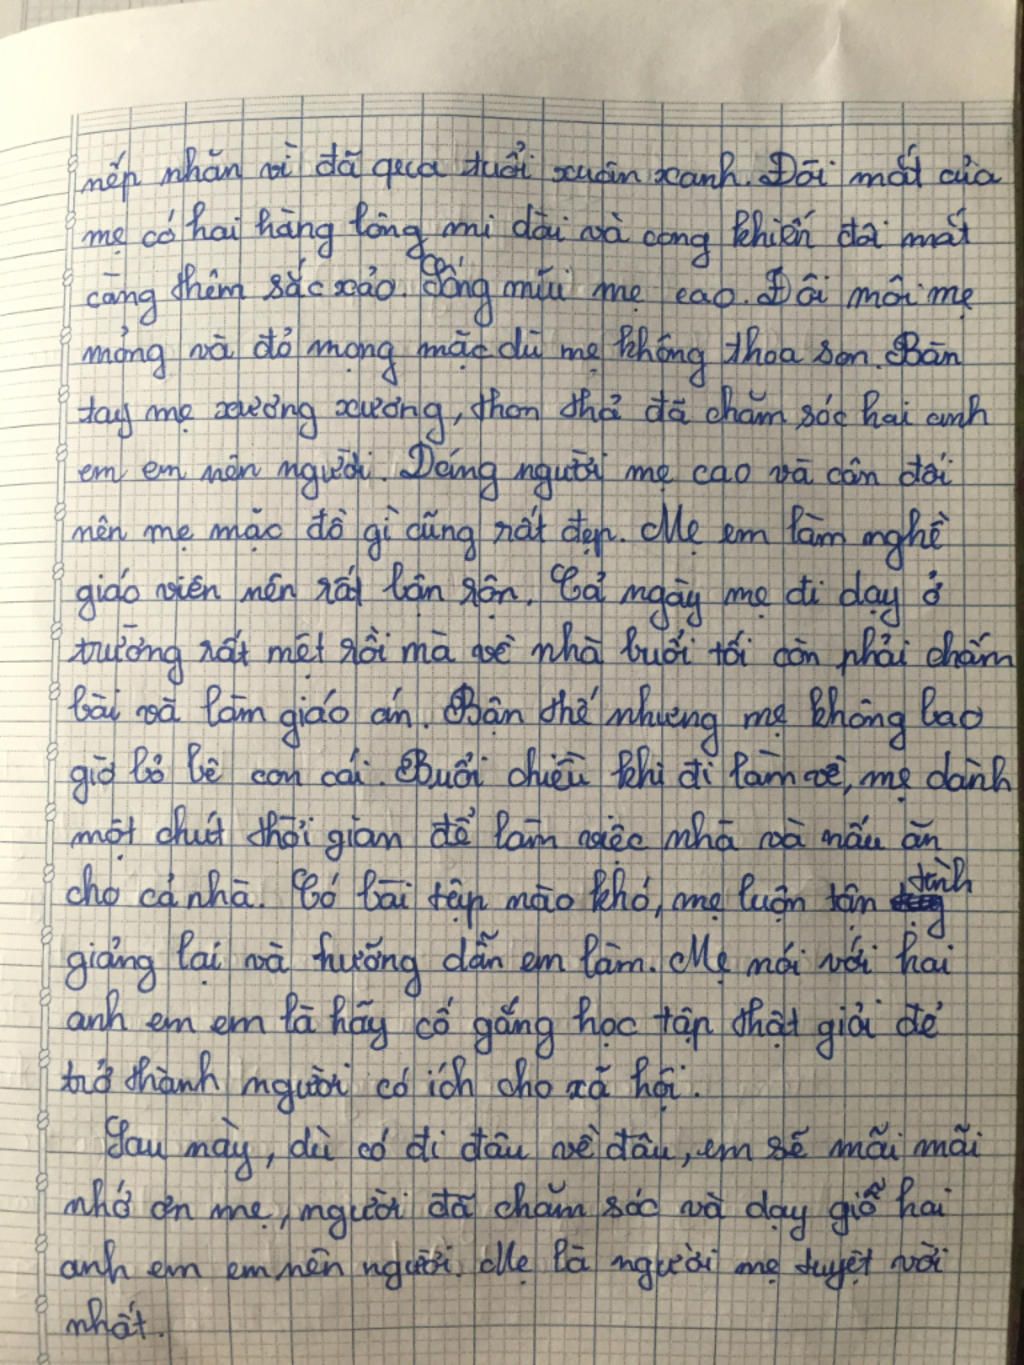 nếp nhăn vì đã qua tuổi xuân xanh. Đôi mắt của
mẹ có hai hàng lông mi dài và cong khiến đôi mắt
càng thêm sắc xảo. Sống mũi mẹ cao. Đôi môi mẹ
mỏng và đỏ mọng mặc dù mẹ không thoa son. Bàn
tay mẹ xương xương, thon thả đã chăm sóc hai anh
em em nên người. Dáng người mẹ cao và cân đối
nên mẹ mặc đồ gì cũng rất đẹp. Mẹ em làm nghề
giáo viên nên rất bận rộn. Cả ngày mẹ đi dạy ở
trường rất mệt rồi mà về nhà buổi tối còn phải chấm
bài và làm giáo án. Bận thế nhưng mẹ không bao
giờ bỏ bê con cái. Buổi chiều khi đi làm về, mẹ dành
một chút thời gian để làm việc nhà và nấu ăn
cho cả nhà. Có bài tập nào khó, mẹ luôn tận tình
giảng lại và hướng dẫn em làm. Mẹ nói với hai
anh em em là hãy cố gắng học tập thật giỏi để
trở thành người có ích cho xã hội.
Sau này, dù có đi đâu về đâu, em sẽ mãi mãi
nhớ ơn mẹ, người đã chăm sóc và dạy giỗ hai
anh em em nên người. Mẹ là người mẹ tuyệt vời
nhất.